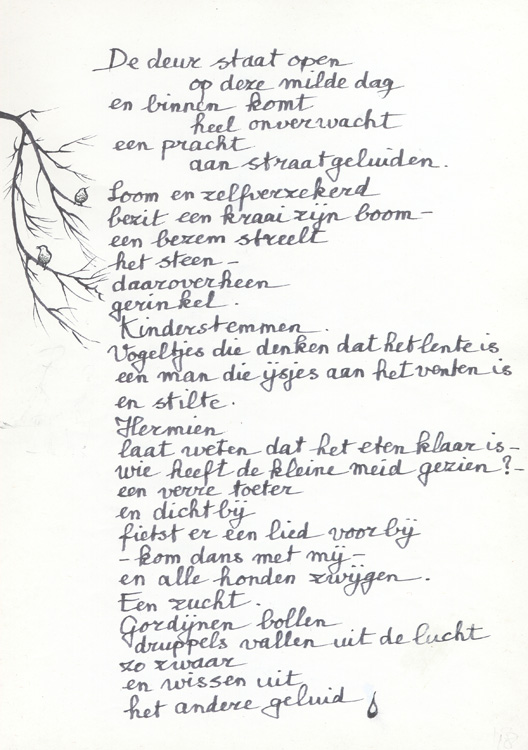 De deur staat open
op deze milde dag
en binnen komt
heel onverwacht
een pracht
aan straatgeluiden.
Loom en zelfverzekerd
bezit een kraai zijn boom -
een bezem streelt
het steen -
daaroverheen
gerinkel.
Kinderstemmen.
Vogeltjes die denken dat het lente is
een man die ijsjes aan het venten is
en stilte.
Hermien
laat weten dat het eten klaar is -
wie heeft de kleine meid gezien? -
een verre toeter
en dichtbij
fietst er een lied voorbij
- kom dans met mij -
en alle honden zwijgen.
Een zucht.
Gordijnen bollen
druppels vallen uit de lucht
zo zwaar
en wissen uit
het andere geluid
18